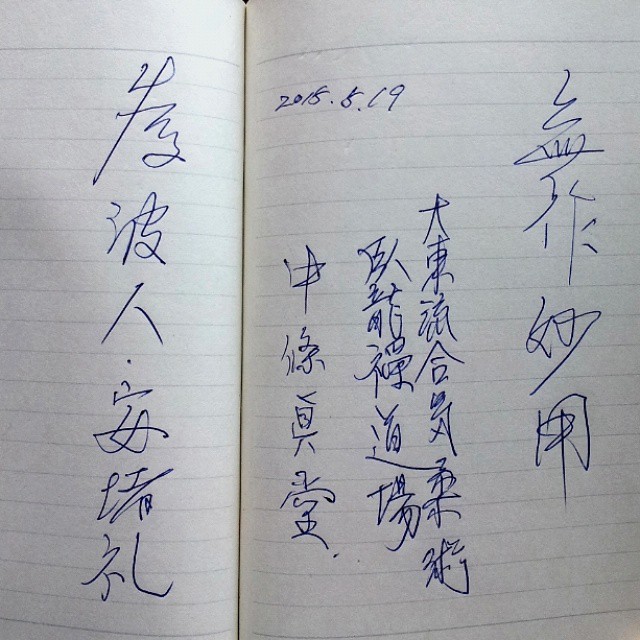 無作妙用
大東流合気柔術
臥龍禪道場
中條眞堂
2015.5.19
波人・安堵礼